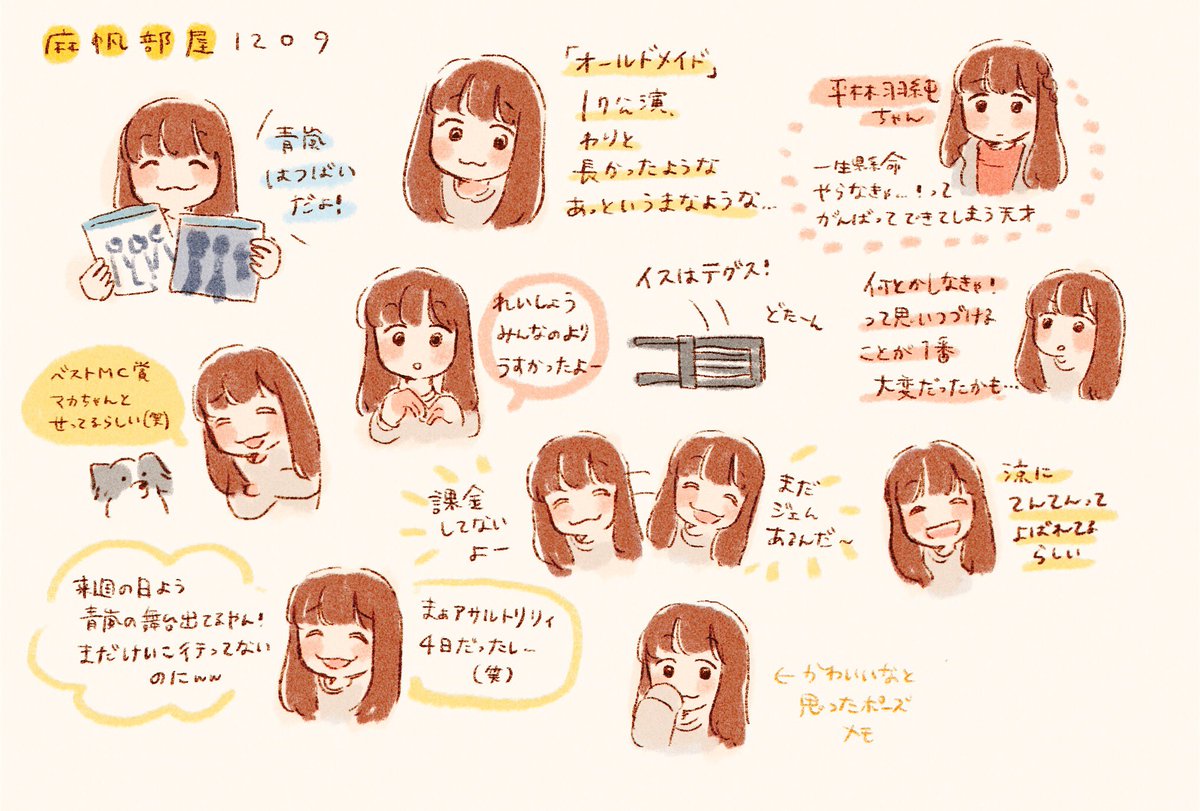 麻帆部屋1209
青嵐
はつばい
だよ!
「オールドメイド」
17公演、
わりと
長かったような
あっというまなような…
平林羽純
ちゃん
一生懸命
やらなきゃ…!って
がんばってできてしまう天才
れいしょう
みんなのより
うすかったよー
イスはテグス!
どたーん
何とかしなきゃ!
って思いつづける
ことが1番
大変だったかも…
ベストMC賞
マカちゃんと
せってるらしい(笑)
課金
してない
よー
まだ
ジェム
あるんだ〜
涼に
てんてんって
よばれてる
らしい
来週の日よう
青嵐の舞台出てるやん!
まだけいこ行ってない
のにww
まぁアサルトリリィ
4日だったし〜
(笑)
←かわいいなと
思ったポーズ
メモ